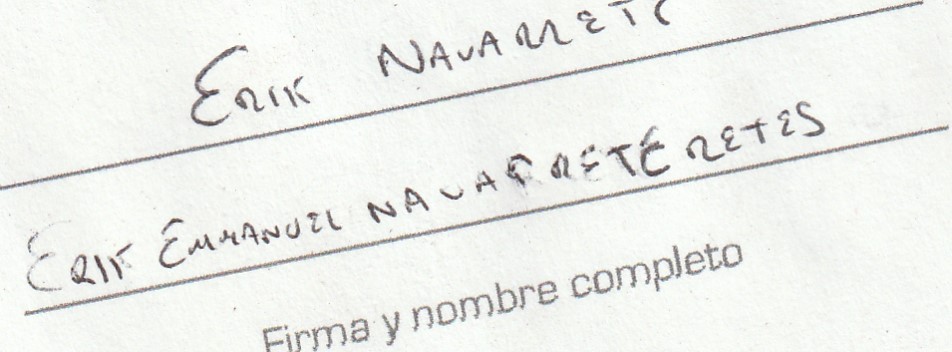 ERIK NAVARRETE
ERIK EMMANUEL NAVARRETE RETES
Firma y nombre completo